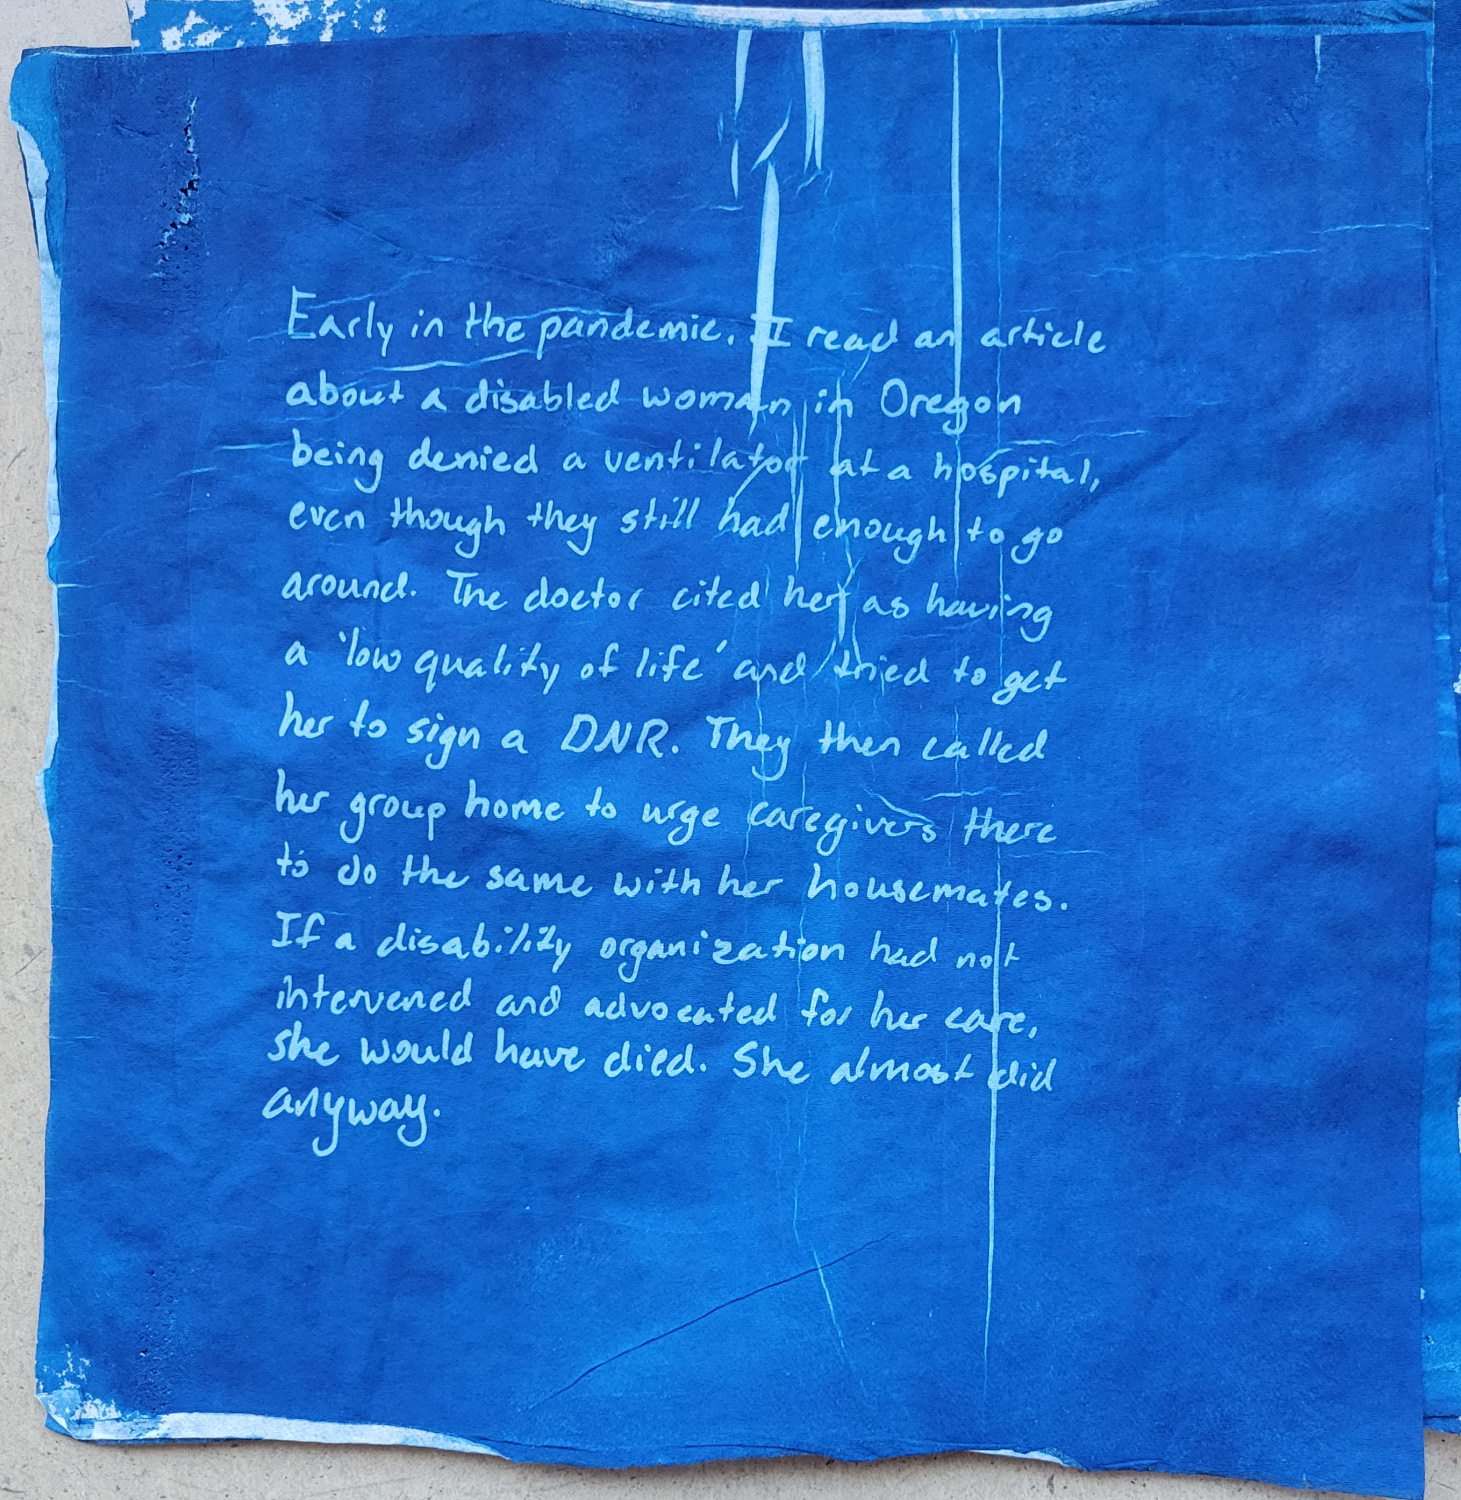 Early in the pandemic. I read an article
about a disabled woman in Oregon
being denied a ventilator at a hospital,
even though they still had enough to go
around. The doctor cited her as having
a 'low quality of life' and tried to get
her to sign a DNR. They then called
her group home to urge caregivers there
to do the same with her housemates.
If a disability organization had not
intervened and advocated for her care,
she would have died. She almost did
anyway.